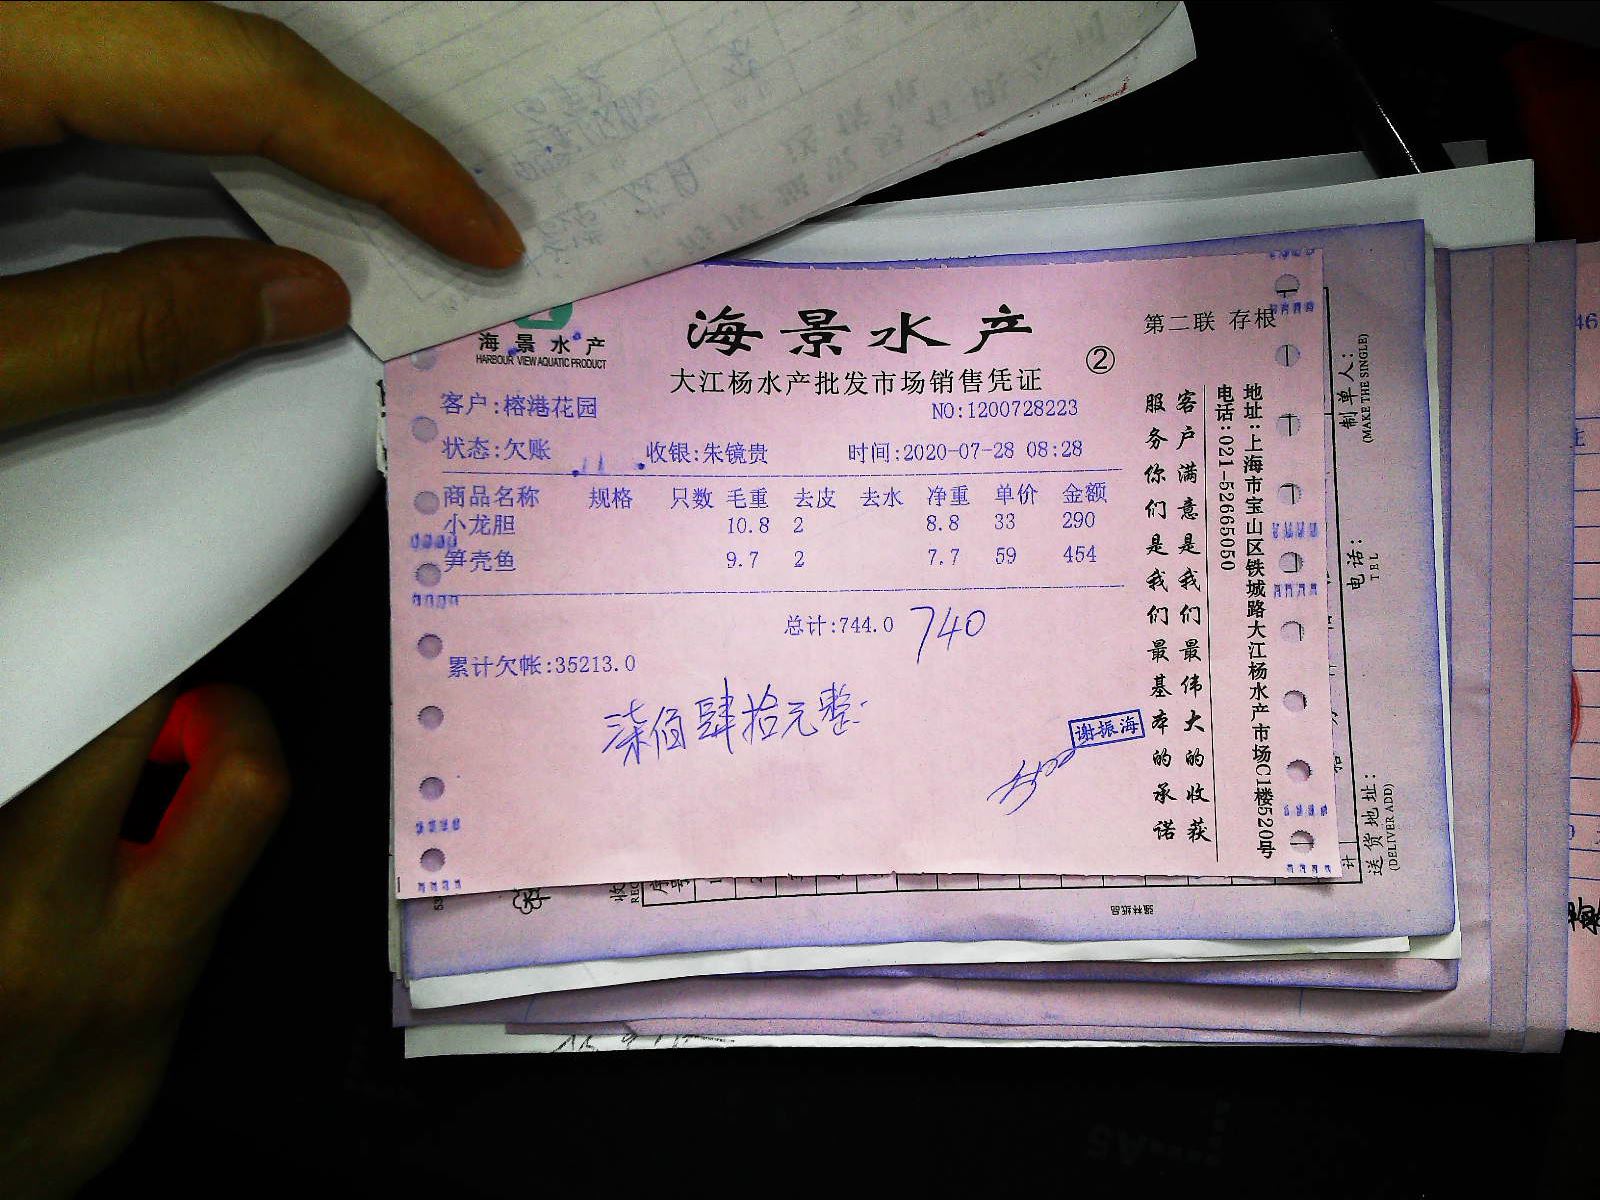 海景水产
HARBOUR VIEW AQUATIC PRODUCT
海景水产
大江杨水产批发市场销售凭证
②
第二联 存根
客户:榕港花园
NO:1200728223
状态:欠账 收银:朱镜贵 时间:2020-07-28 08:28
商品名称 规格 只数 毛重 去皮 去水 净重 单价 金额
小龙胆 10.8 2 8.8 33 290
笋壳鱼 9.7 2 7.7 59 454
总计:744.0 740
累计欠帐:35213.0
柒佰肆拾元整
谢振海
客户满意是我们最伟大的收获
服务你们是我们最基本的承诺
地址:上海市宝山区铁城路大江杨水产市场C1楼520号
电话:021-52665050
制单人:
(MAKE THE SINGLE)
电话:
TEL
送货地址:
(DELIVER ADD)